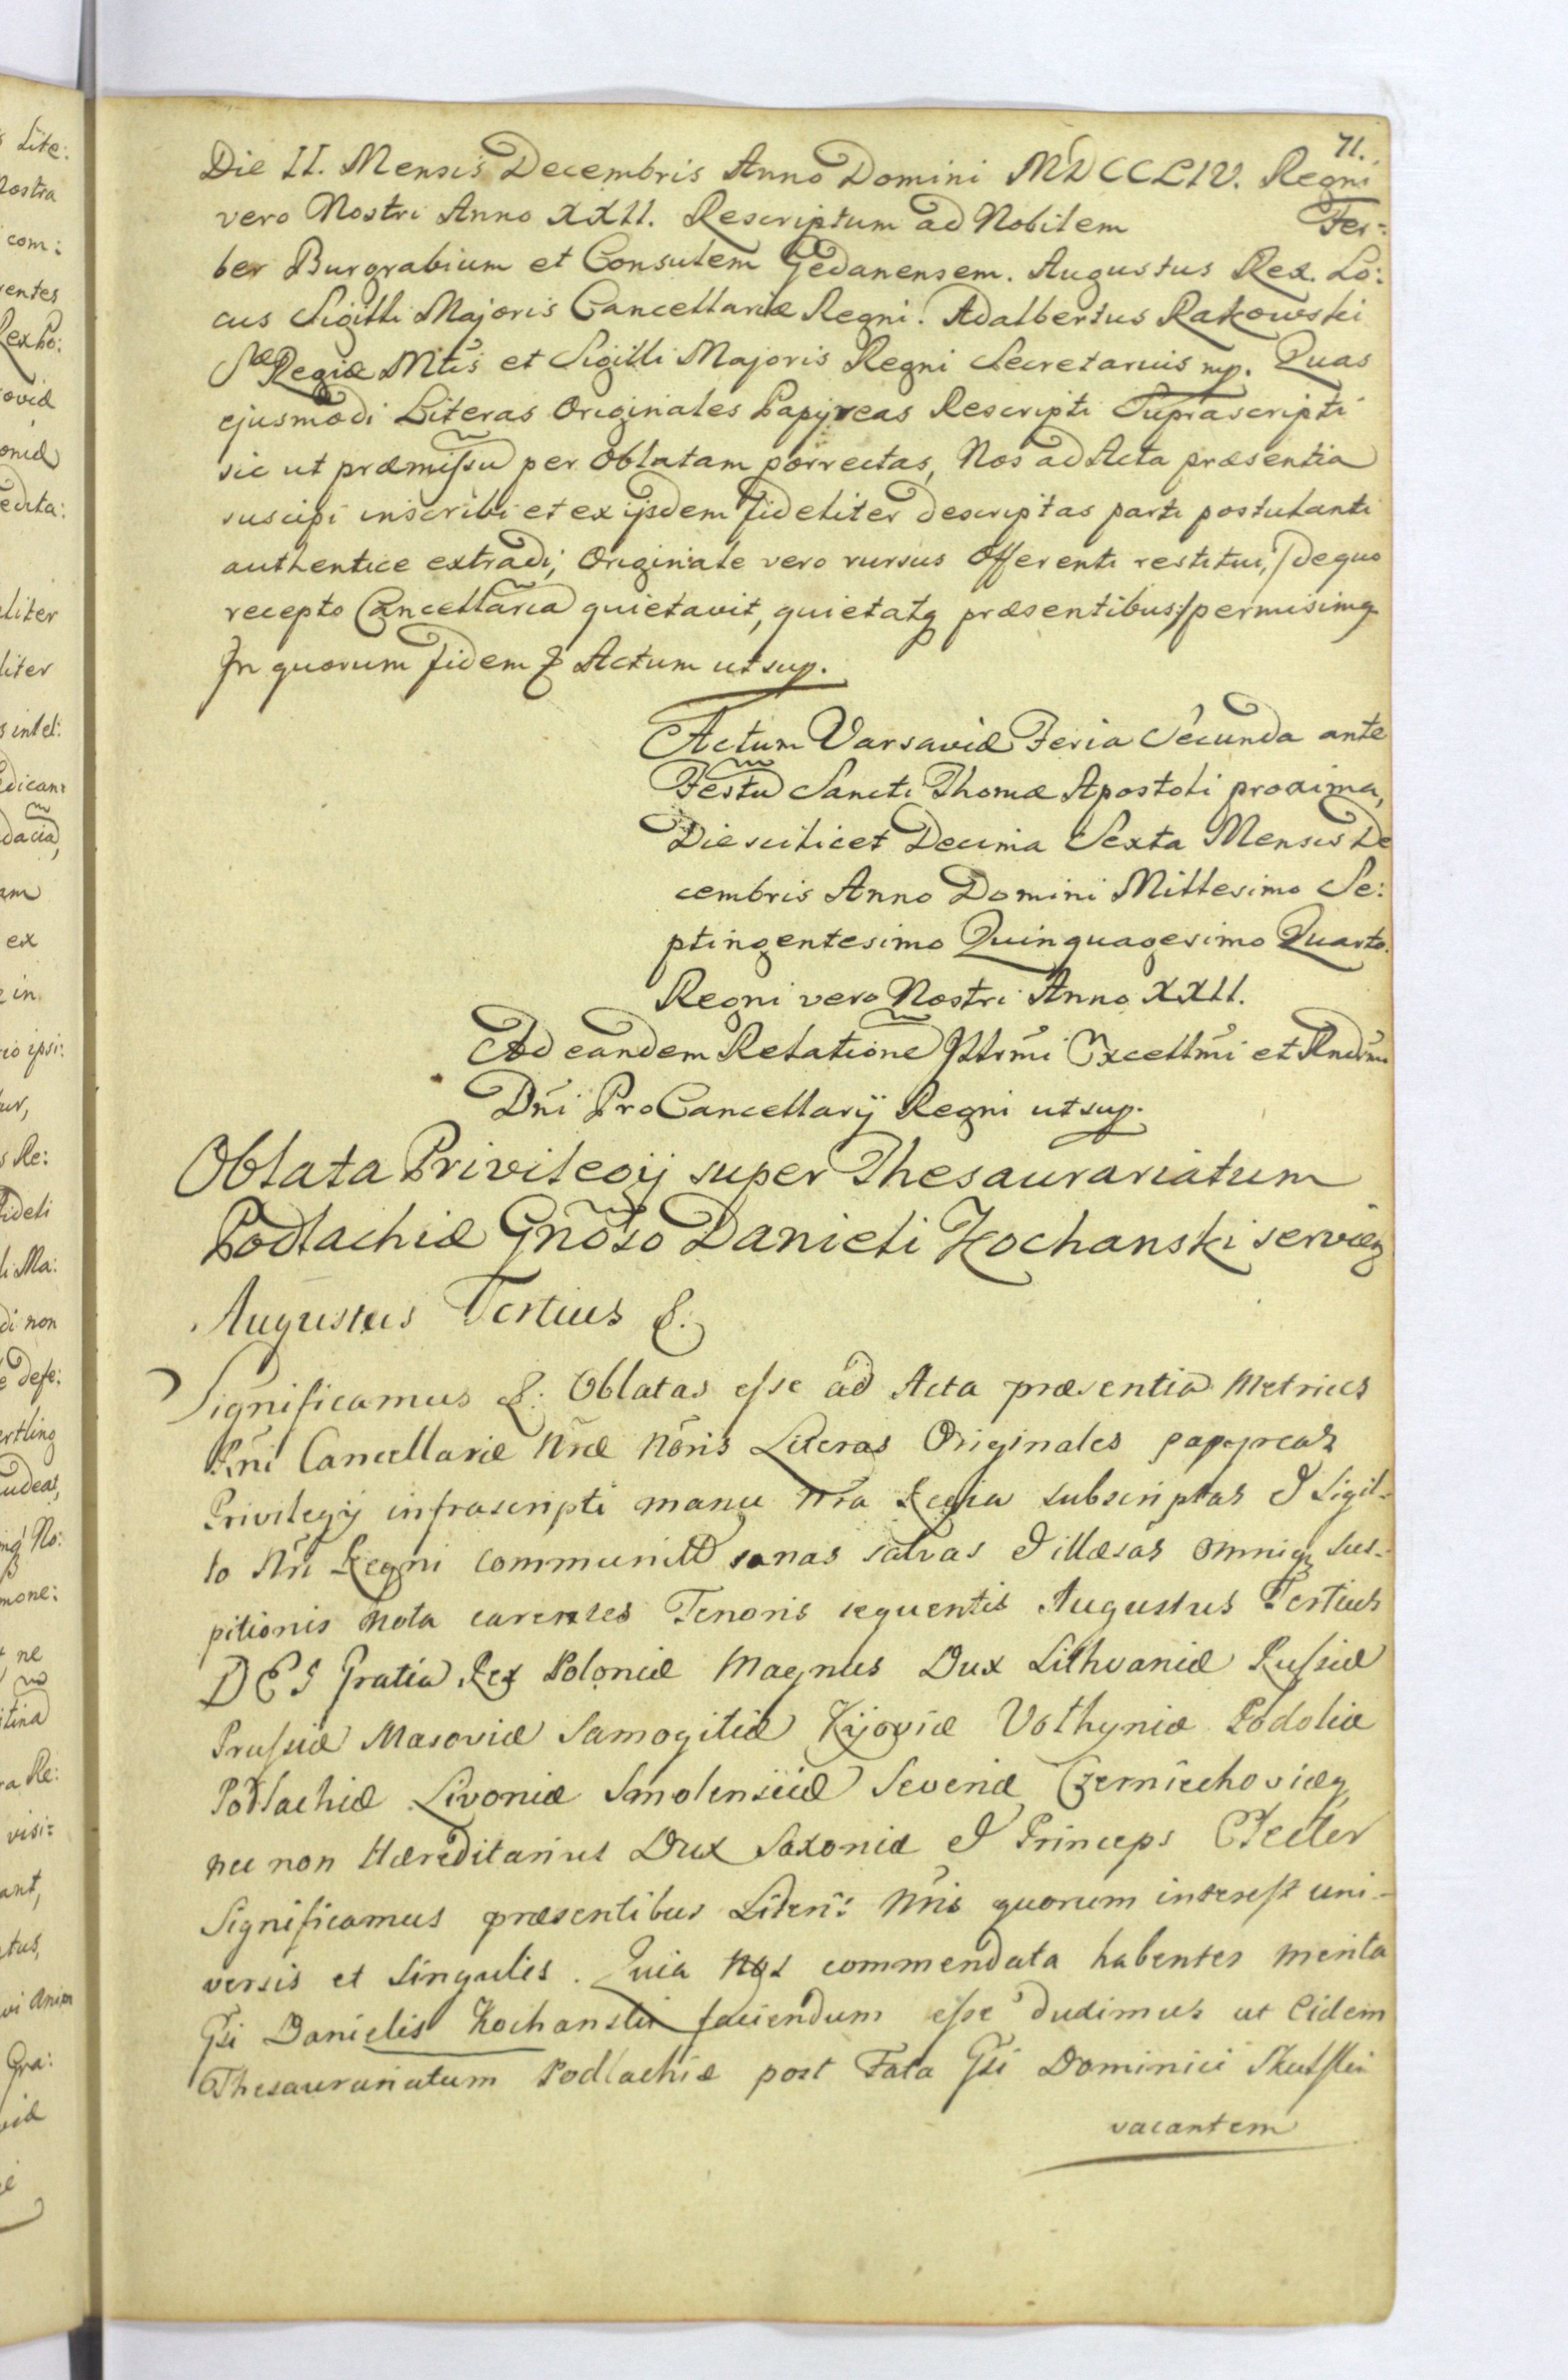 71.
Die II. Mensis Decembris Anno Domini MDCCLIV. Regni
vero Nostri Anno XXII. Rescriptum ad Nobilem Fer:
ber Burgrabium et Consulem Gedanensem. Augustus Rex. Lo:
cus Sigilli Majoris Cancellariæ Regni. Adalbertus Rakowski
Sæ Regiæ Mtis et Sigilli Majoris Regni Secretarius mp. Quas
ejusmodi Literas Originales Papyreas Rescripti Suprascripti
sic ut præmissũ per Oblatam porrectas, Nos ad Acta præsentia
suscipi inscribi et ex ijsdem fideliter descriptas parti postulanti
authentice extradi; Originale vero rursus Offerenti restitui, /de quo
recepto Cancellariã quietavit, quietatq præsentibus:/ permisimq
In quorum fidem & Actum ut sup.
Actum Varsaviæ Feria Secunda ante
Festũ Sancti Thomæ Apostoli proxima,
Die scilicet Decima Sexta Mensis De
cembris Anno Domini Millesimo Se:
ptingentesimo Quinquagesimo Quarto.
Regni vero Nostri Anno XXII.
Ad eandem Relationẽ Illrmi Excellmi et Rndmi
Dni ProCancellarij Regni ut sup.
Oblata Privilegij super Thesaurariatum
Podlachiæ Gnoso Danieli Kochanski servieñ
Augustus Tertius &.
Significamus &. Oblatas esse ad Acta præsentia Metrices
Rni Cancellariæ Nræ Noris Literas Originales papyreas
Privilegij infrascripti manu Nra Regia subscriptas & Sigil-
lo Nri Regni communitas sanas salvas & illæsas omniq sus-
pitionis nota carentes Tenoris sequentis Augustus Tertius
DEI Gratia Rex Poloniæ Magnus Dux Lithvaniæ Russiæ
Prussiæ Masoviæ Samogitiæ Kijoviæ Volhyniæ Podoliæ
Podlachiæ Livoniæ Smolensciæ Severiæ Czerniechoviæq
nec non Hæreditarius Dux Saxoniæ & Princeps Elector
Significamus præsentibus Litern: Nris quorum interest uni-
versis et singulis. Quia Nos commendata habentes merita
Gsi Danielis Kochanski faciendum esse duximus ut Eidem
Thesaurariatum Podlachiæ post Fata Gsi Dominici
vacantem